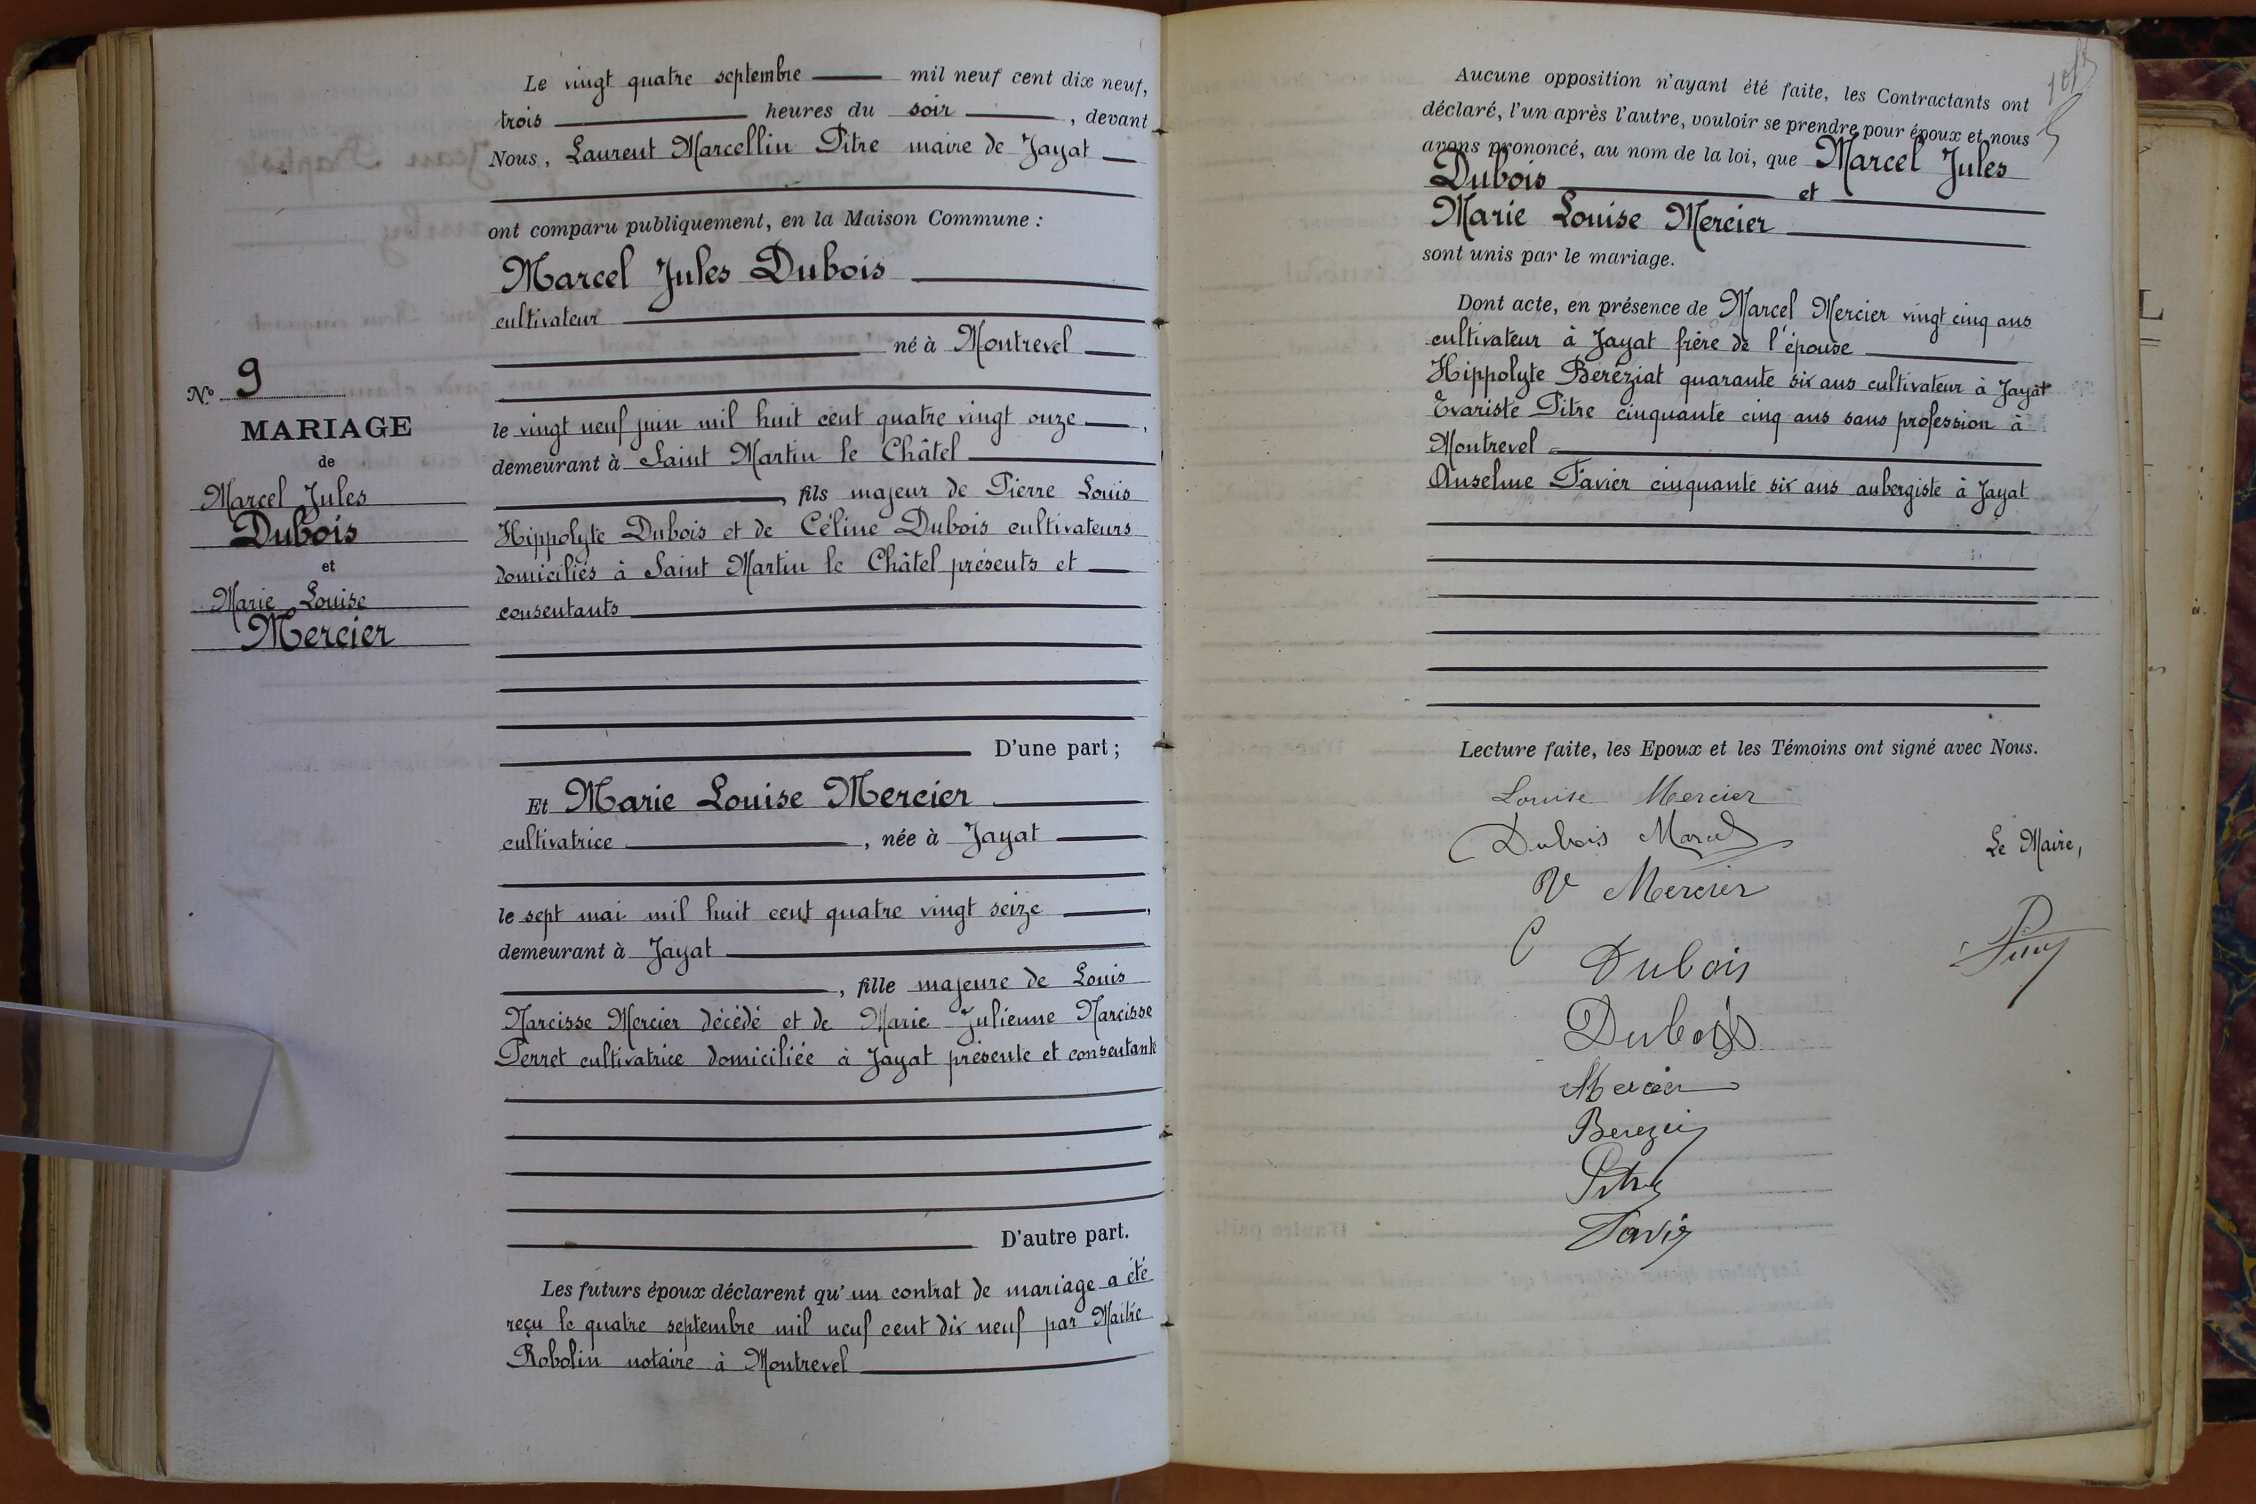 Le vingt quatre septembre mil neuf cent dix neuf,
trois heures du soir, devant
Nous, Laurent Marcellin Pitre maire de Jayat
ont comparu publiquement, en la Maison Commune :
Marcel Jules Dubois
cultivateur
né à Montrevel
le vingt neuf juin mil huit cent quatre vingt onze,
demeurant à Saint Martin le Châtel
, fils majeur de Pierre Louis
Hippolyte Dubois et de Céline Dubois cultivateurs
domiciliés à Saint Martin le Châtel présents et
consentants
D'une part ;
Et Marie Louise Mercier
cultivatrice, née à Jayat
le sept mai mil huit cent quatre vingt seize,
demeurant à Jayat
, fille majeure de Louis
Narcisse Mercier décédé et de Marie Julienne Narcisse
Perret cultivatrice domiciliée à Jayat présente et consentante
D'autre part.
Les futurs époux déclarent qu'un contrat de mariage a été
reçu le quatre septembre mil neuf cent dix neuf par Maitre
Robolin notaire à Montrevel
N° 9
MARIAGE
de
Marcel Jules
Dubois
et
Marie Louise
Mercier
Aucune opposition n'ayant été faite, les Contractants ont
déclaré, l'un après l'autre, vouloir se prendre pour époux et nous
avons prononcé, au nom de la loi, que Marcel Jules
Dubois et
Marie Louise Mercier
sont unis par le mariage.
Dont acte, en présence de Marcel Mercier vingt cinq ans
cultivateur à Jayat frère de l'épouse
Hippolyte Beréziat quarante six ans cultivateur à Jayat
Evariste Pitre cinquante cinq ans sans profession à
Montrevel
Anselme Favier cinquante six ans aubergiste à Jayat
Lecture faite, les Epoux et les Témoins ont signé avec Nous.
Louise Mercier
Dubois Marcel
Le Maire,
Vve Mercier
C Dubois
Pitre
Dubois
Mercier
Pitre
Favier